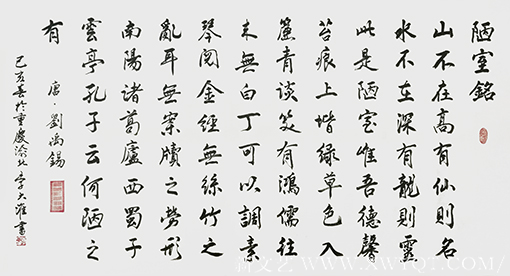 陋室銘
山不在高有仙則名
水不在深有龍則靈
此是陋室唯吾德馨
苔痕上堦綠草色入
簾青談笑有鴻儒往
来無白丁可以調素
琴閱金經無絲竹之
亂耳無案牘之勞形
南陽諸葛廬西蜀子
雲亭孔子云何陋之
有
唐·劉禹錫
己亥春於重慶渝北李大淮書